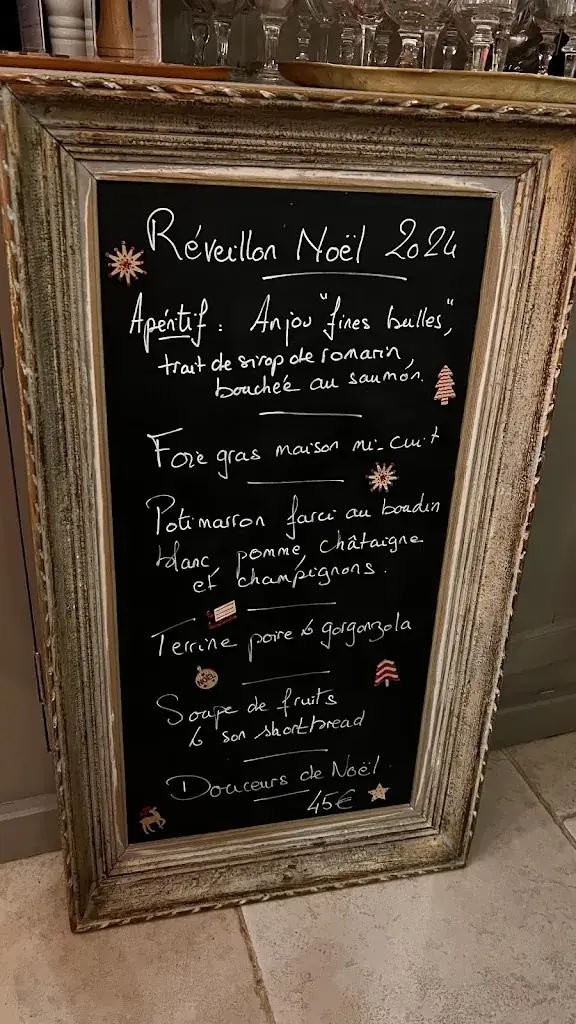 Réveillon Noël 2024
Apéritif : Anjou "fines bulles",
trait de sirop de romarin,
bouchée au saumon.
Foie gras maison mi-cuit
Potimarron farci au boudin
blanc, pomme, châtaigne
et champignons.
Terrine poire & gorgonzola
NOËL
Soupe de fruits
& son shortbread
Douceurs de Noël
45€